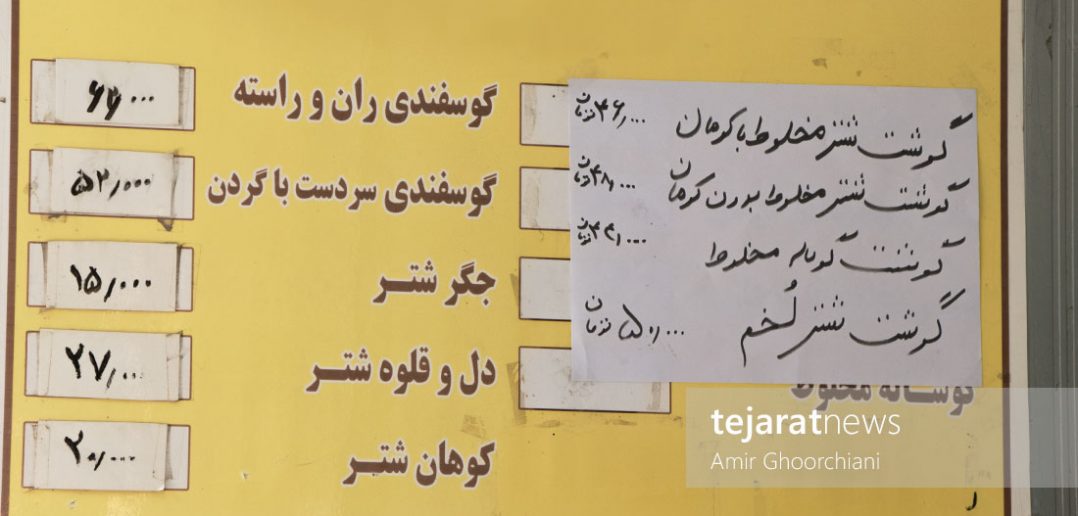 گوشت شتر مخلوط با کوهان ۴۶٫۰۰۰ تومان
گوشت شتر مخلوط بدون کوهان ۴۸٫۰۰۰ تومان
گوشت گوساله مخلوط ۴۴٫۰۰۰ تومان
گوشت شتر لُخم ۵۰٫۰۰۰ تومان
گوساله مخلوط
گوسفندی ران و راسته ۶۶۰۰۰
گوسفندی سردست با گردن ۵۲٫۰۰۰
جگر شتر ۱۵٫۰۰۰
دل و قلوه شتر ۲۷٫۰۰۰
کوهان شتر ۲۰٫۰۰۰
tejaratnews
Amir Ghoorchiani